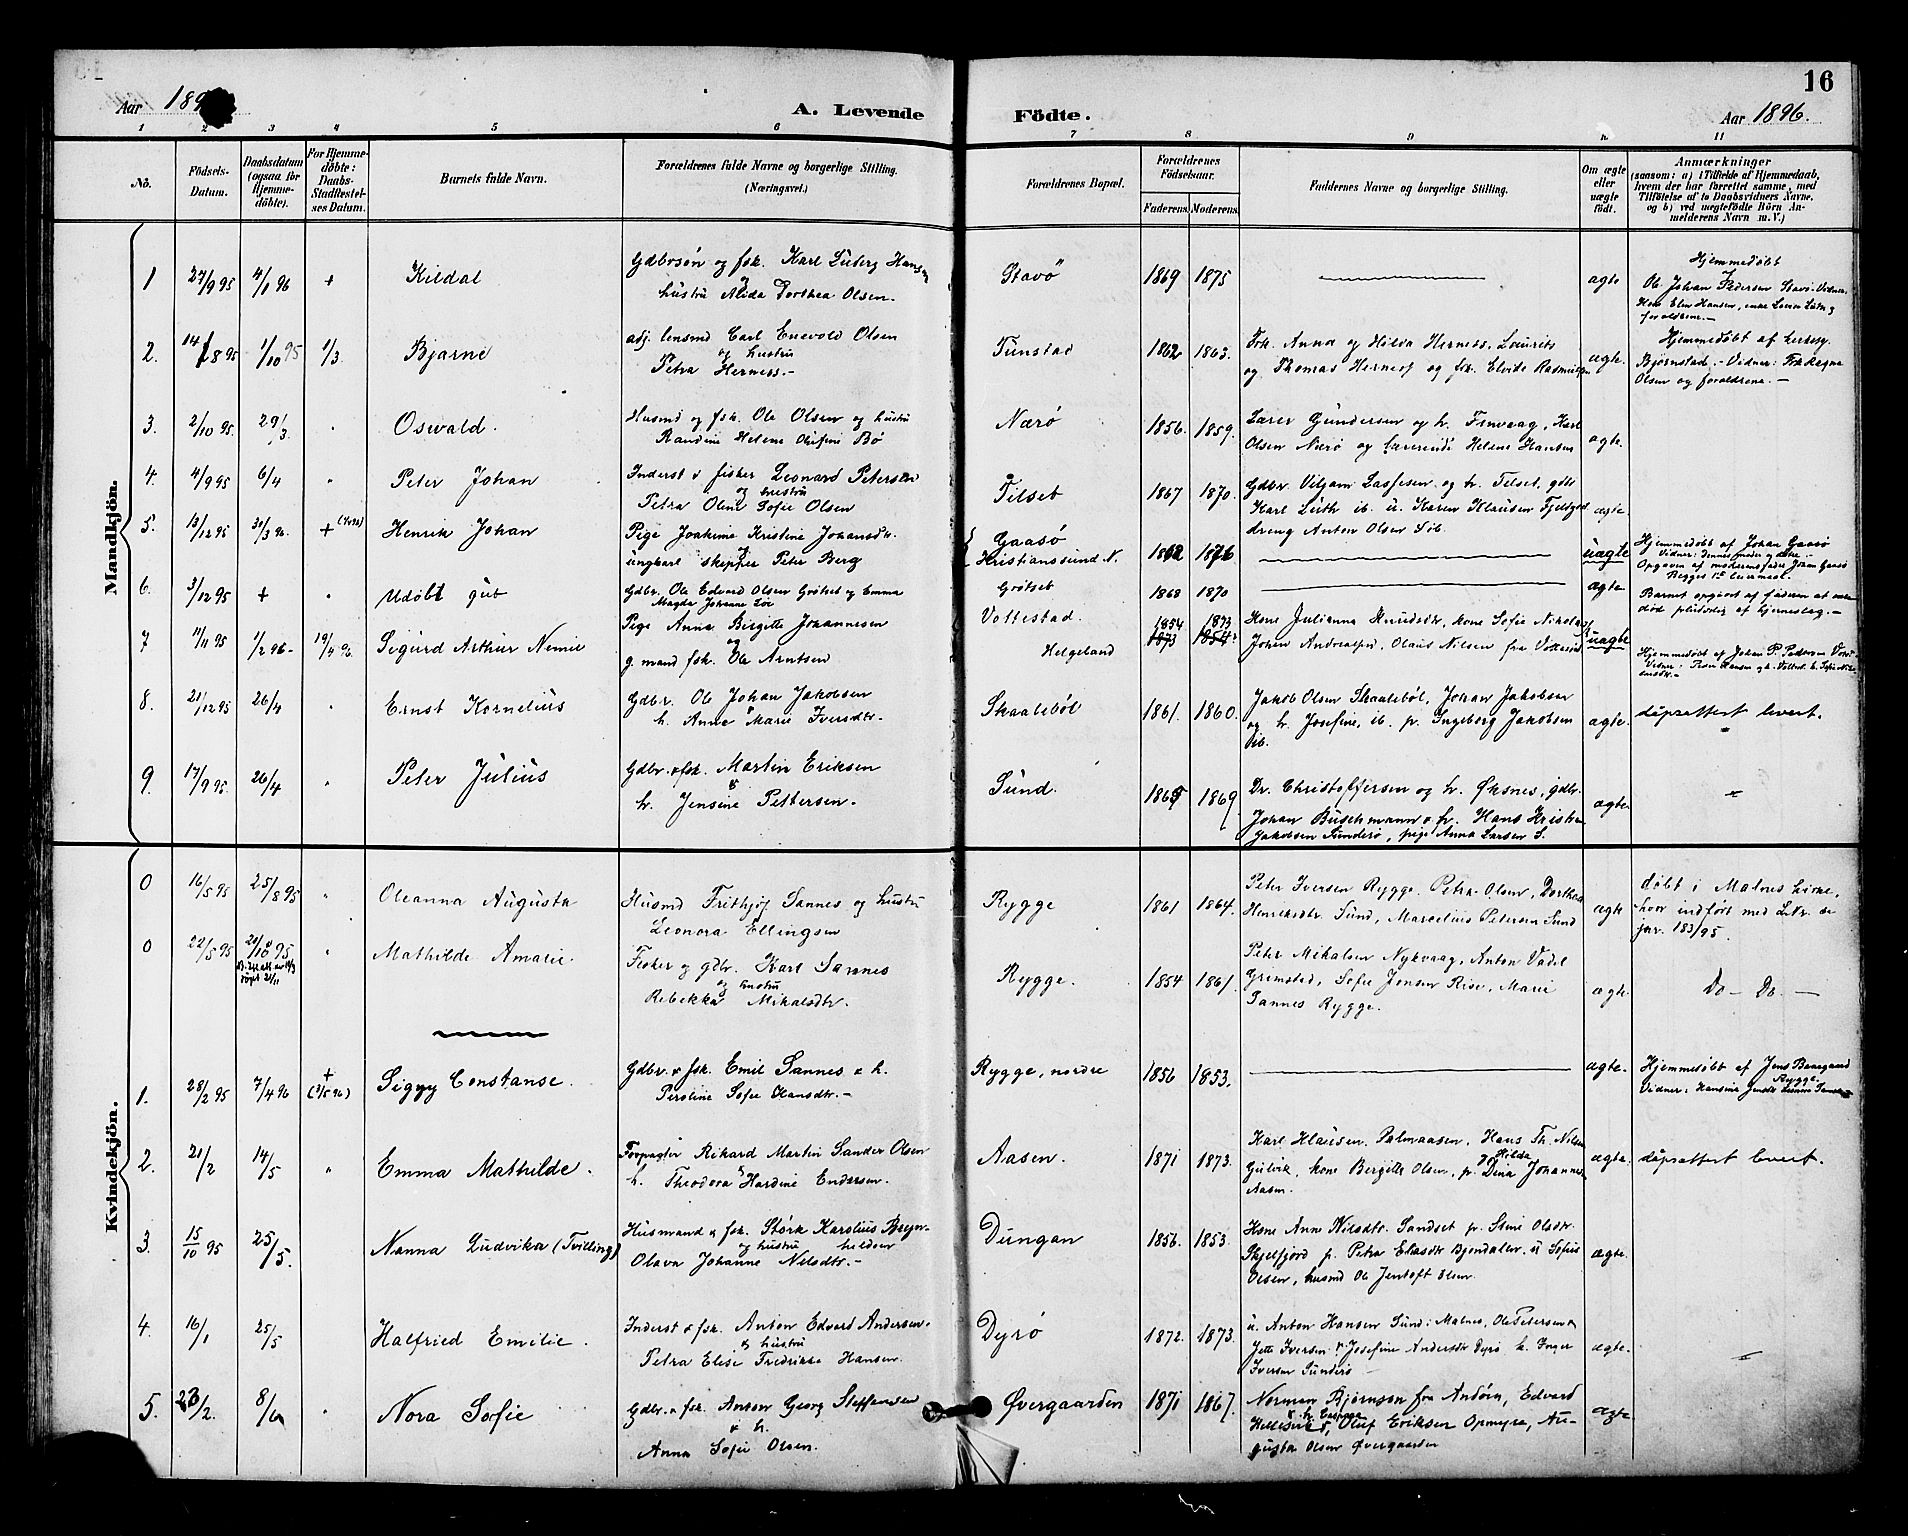 16
Aar 189
A. Levende Födte.
Aar 1896.
1 2 3 4 5 6 7 8 9 10 11
No.
Födsels-Datum.
Daabsdatum (ogsaa för Hjemme-döbte).
For Hjemme-döbte: Daabs-Stadfæstel-ses Datum.
Barnets fulde Navn.
Forældrenes fulde Navne og borgerlige Stilling. (Næringsvei.)
Forældrenes Bopæl.
Forældrenes Födselsaar.
Faderens. Moderens.
Faddernes Navne og borgerlige Stilling.
Om ægte eller uægte födt.
Anmærkninger (sansom: a) i Tilfælde af Hjemmedaab, hvem der har forrettet samme, med Tilföielse af to Daabsvidners Navne. og b) ved uægtefödte Börn An-melderens Navn m. V.)
Mandkjön.
1 27/9 95 4/1 96 + Kildal
Gdbrsön og fsk. Karl Luberg Hansen
og hustru Alida Dorthea Olsen.
Stavö 1869 1875 ægte
Hjemmedöbt
Ob. Johan Pedersen Stavö. Vidner
Kone Elen Hansen, enke Lovise
forældrene.
2. 14/8 95 1/10 95 1/3 Bjarne
adj. lensmd Carl Enevold Olsen
og hustru
Petra Herness.
Tunstad 1862 1863.
Frk. Anna og Hilda Herness, Laurits
og Thomas Herness og fsk. Elvide Rasmussen
ægte.
Hjemmedöbt af
Björnstad. Vidner: Frk Ragna
Olsen og forældrene.
3. 2/10 95. 29/3 " Oswald.
Husmd og fsk. Ole Olsen og hustru
Randine Helene Olufine Bö
Nærö 1856. 1859.
Lærer Gundersen og h. Finvaag, Karl
Olsen Nærö og Lærerinde Helene Hansen
ægte.
4. 4/9 95 6/4 " Peter Johan
Inderst & fisker Leonard Petersen
og hustru
Petra Oline Sofie Olsen
Tilset 1867 1870.
Gdbr. Viljam Lassesen og h. Tilset, gdb
Karl Luth ib. u. Karen Klausen Fjeldgaard
dreng Anton Olsen Sib.
ægte
5. 13/12 95 30/3 96. + Henrik Johan
Pige Joakime Kristine Johansdtr.
ungkarl skipper Peter Berg
Gaasö
Kristianssund N. 1876 uægte
Hjemmedöbt af Johan Gaasö
Vidner: Dennes moder og
Opgaven af moderens fader Johan Gaasö
Begges 1ste leiermaal.
6. 3/12 95 + " Udöbt gut
Gdbr. Ole Edvard Olsen Grötset og Emma
Magda Johanne
Grötset 1868 1870 ægte
Barnet opgivet af faderen at være
död pludselig af hjerneslag.
7 11/11 95 1/2 96 19/4 96. Sigurd Arthur Nimie
Pige Anna Birgitte Johannesen
og
g. mand fsk. Ole Arntsen
Vottestad.
Helgeland
1854 1873
1873 1854?
Kone Julianna Knudsdtr, kone Sofie Nikolais
Johan Andreassen, Olaus Nilsen fra Vottestad
uægte
Hjemmedöbt af Johan P. Pedersen
8. 21/12 95 26/4 " Ernst Kornelius
Gdbr. Ole Johan Jakobsen
h. Anne Marie Iversdtr.
Skaaleböl 1861. 1860.
Jakob Olsen Skaaleböl, Johan Jakobsen
og h. Josefine, ib. p. Ingeborg Jakobsen
ib.
ægte
dåpsattest levert.
9. 17/9 95. 26/4 " Peter Julius
Gdbr. & fsk. Martin Eriksen
&
h. Jensine Pettersen.
Sund. 1869.
Dr. Christoffersen og h. Öksnes, gdbr.
Johan Buschmann & h. Hans Kristian
Jakobsen Sunderö, pige Anna Larsen S.
ægte
"
Kvindekjön.
0 16/5 95 25/8 95 " Oleanna Augusta
Husmd Frithjof Sannes og hustru
Leonora Ellingsen
Rygge 1861 1864.
Peter Iversen Rygge. Petra Olsen, Dorthea
Henriksdtr. Sund, Marcelius Petersen Sund
ægte
döbt i Malnes kirke,
hvor indfört med L.Nr. se
jnr. 183/95.
0 22/5 95 20/10 95 " Mathilde Amalie.
Fisker og gdbr. Karl Sannes
og hustru
Rebekka Mikalsdtr.
Rygge. 1854 1861.
Peter Mikalsen Nykvaag, Anton Vadel
Grimstad, Sofie Jensen Rise, Marie
Sannes Rygge.
ægte.
Do - Do. -
1. 28/2 95 7/4 96 + (3/5 96) Siggy Constanse.
Gdbr. & fsk. Emil Sannes & h.
Peroline Sofie Hansdtr.
Rygge, nordre 1856 1853. ægte.
Hjemmedöbt af Jens Benegaard
Rygge.
Vidner: Hansine Jensdtr
2. 21/2 14/5 " Emma Mathilde.
Forpagter Rikard Martin Sander Olsen
&
h. Theodora Hardine Endersen.
Aasen. 1871 1873.
Karl Klausen. Palmaasen, Hans Th. Nilsen
Gulvik, kone Bergitte Olsen, p. Hilda Dina Johannes
Aasen.
ægte.
dåpsattest levert.
3. 15/10 95 25/5. Nanna Ludvika (Tvilling)
Husmand & fsk. Störk Karolius Bryn-
og hustru hildsen
Olava Johanne Nilsdtr.
Dungan 1856. 1853.
Kone Anne Nilsdtr. Sandset p. Stine Olsdtr.
Skjelfjord p. Petra Eliasdtr Bjorndalen. u Sofus
Olsen, husmd Ole Jentoft Olsen.
ægte.
4. 16/1 25/5 Halfried Emilie.
Inderst & fsk. Anton Edvard Andersen.
& hustru
Petra Elise Fredrikke Hansen.
Dyrö 1872. 1873.
u. Anton Hansen Sund i Malnes, Ole Petersen &
Jette Iversen & Josefine Andersdtr Dyrö h. Inger
Iversen Sunderö
ægte.
"
5. 23/2. 8/6 " Nora Sofie
Gdbr. & fsk. Anton Georg Steffensen
& h.
Anna Sofie Olsen.
Övergaarden 1871 1867.
Norman Björnson fra Andörn, Edvard
Oluf Eriksen Opmyre, Au-
gusta Olsen Övergaarden
ægte